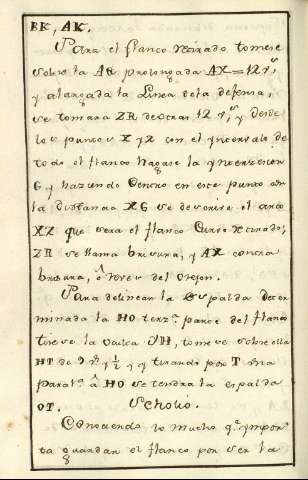 BK, AK.
Para el flanco retirado tomese
sobre la AQ prolongada AX = 12 rs
y alargada la Linea dela defensa,
se tomara ZR deotras 12 rs, y desde
los puntos X y Z con el yntervalo de
todo el flanco hagase la ynterseccion
G y haziendo Centro en este punto con
la distancia XG se descrive el arco
XZ que sera el flanco Curvo retirado,
ZR se llama brisura, y AX contra
brisura, ô reves del Orejon.
Para delinear la espalda deter
minada la HO terza. parte del flanco
tirese la VH, tomese sobre ella
HT de 9 rs y ½ y tirando por T una
paralª â HO se tendra la espalda
OT. Scholio.
Conociendo lo mucho qe. ympor
ta guardar el flanco por ser la